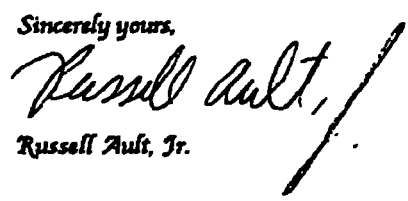 Sincerely yours,
Russell Ault, Jr.
Russell Ault, Jr.